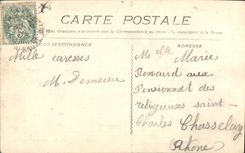 CARTE POSTALE
CORRESPONDANCE
ADRESSE
Mille caresses
M. Demeure
Melle Marie
Renard aux
Pensionnat des
religieuses Saint-
Charles Chasselay
Rhône